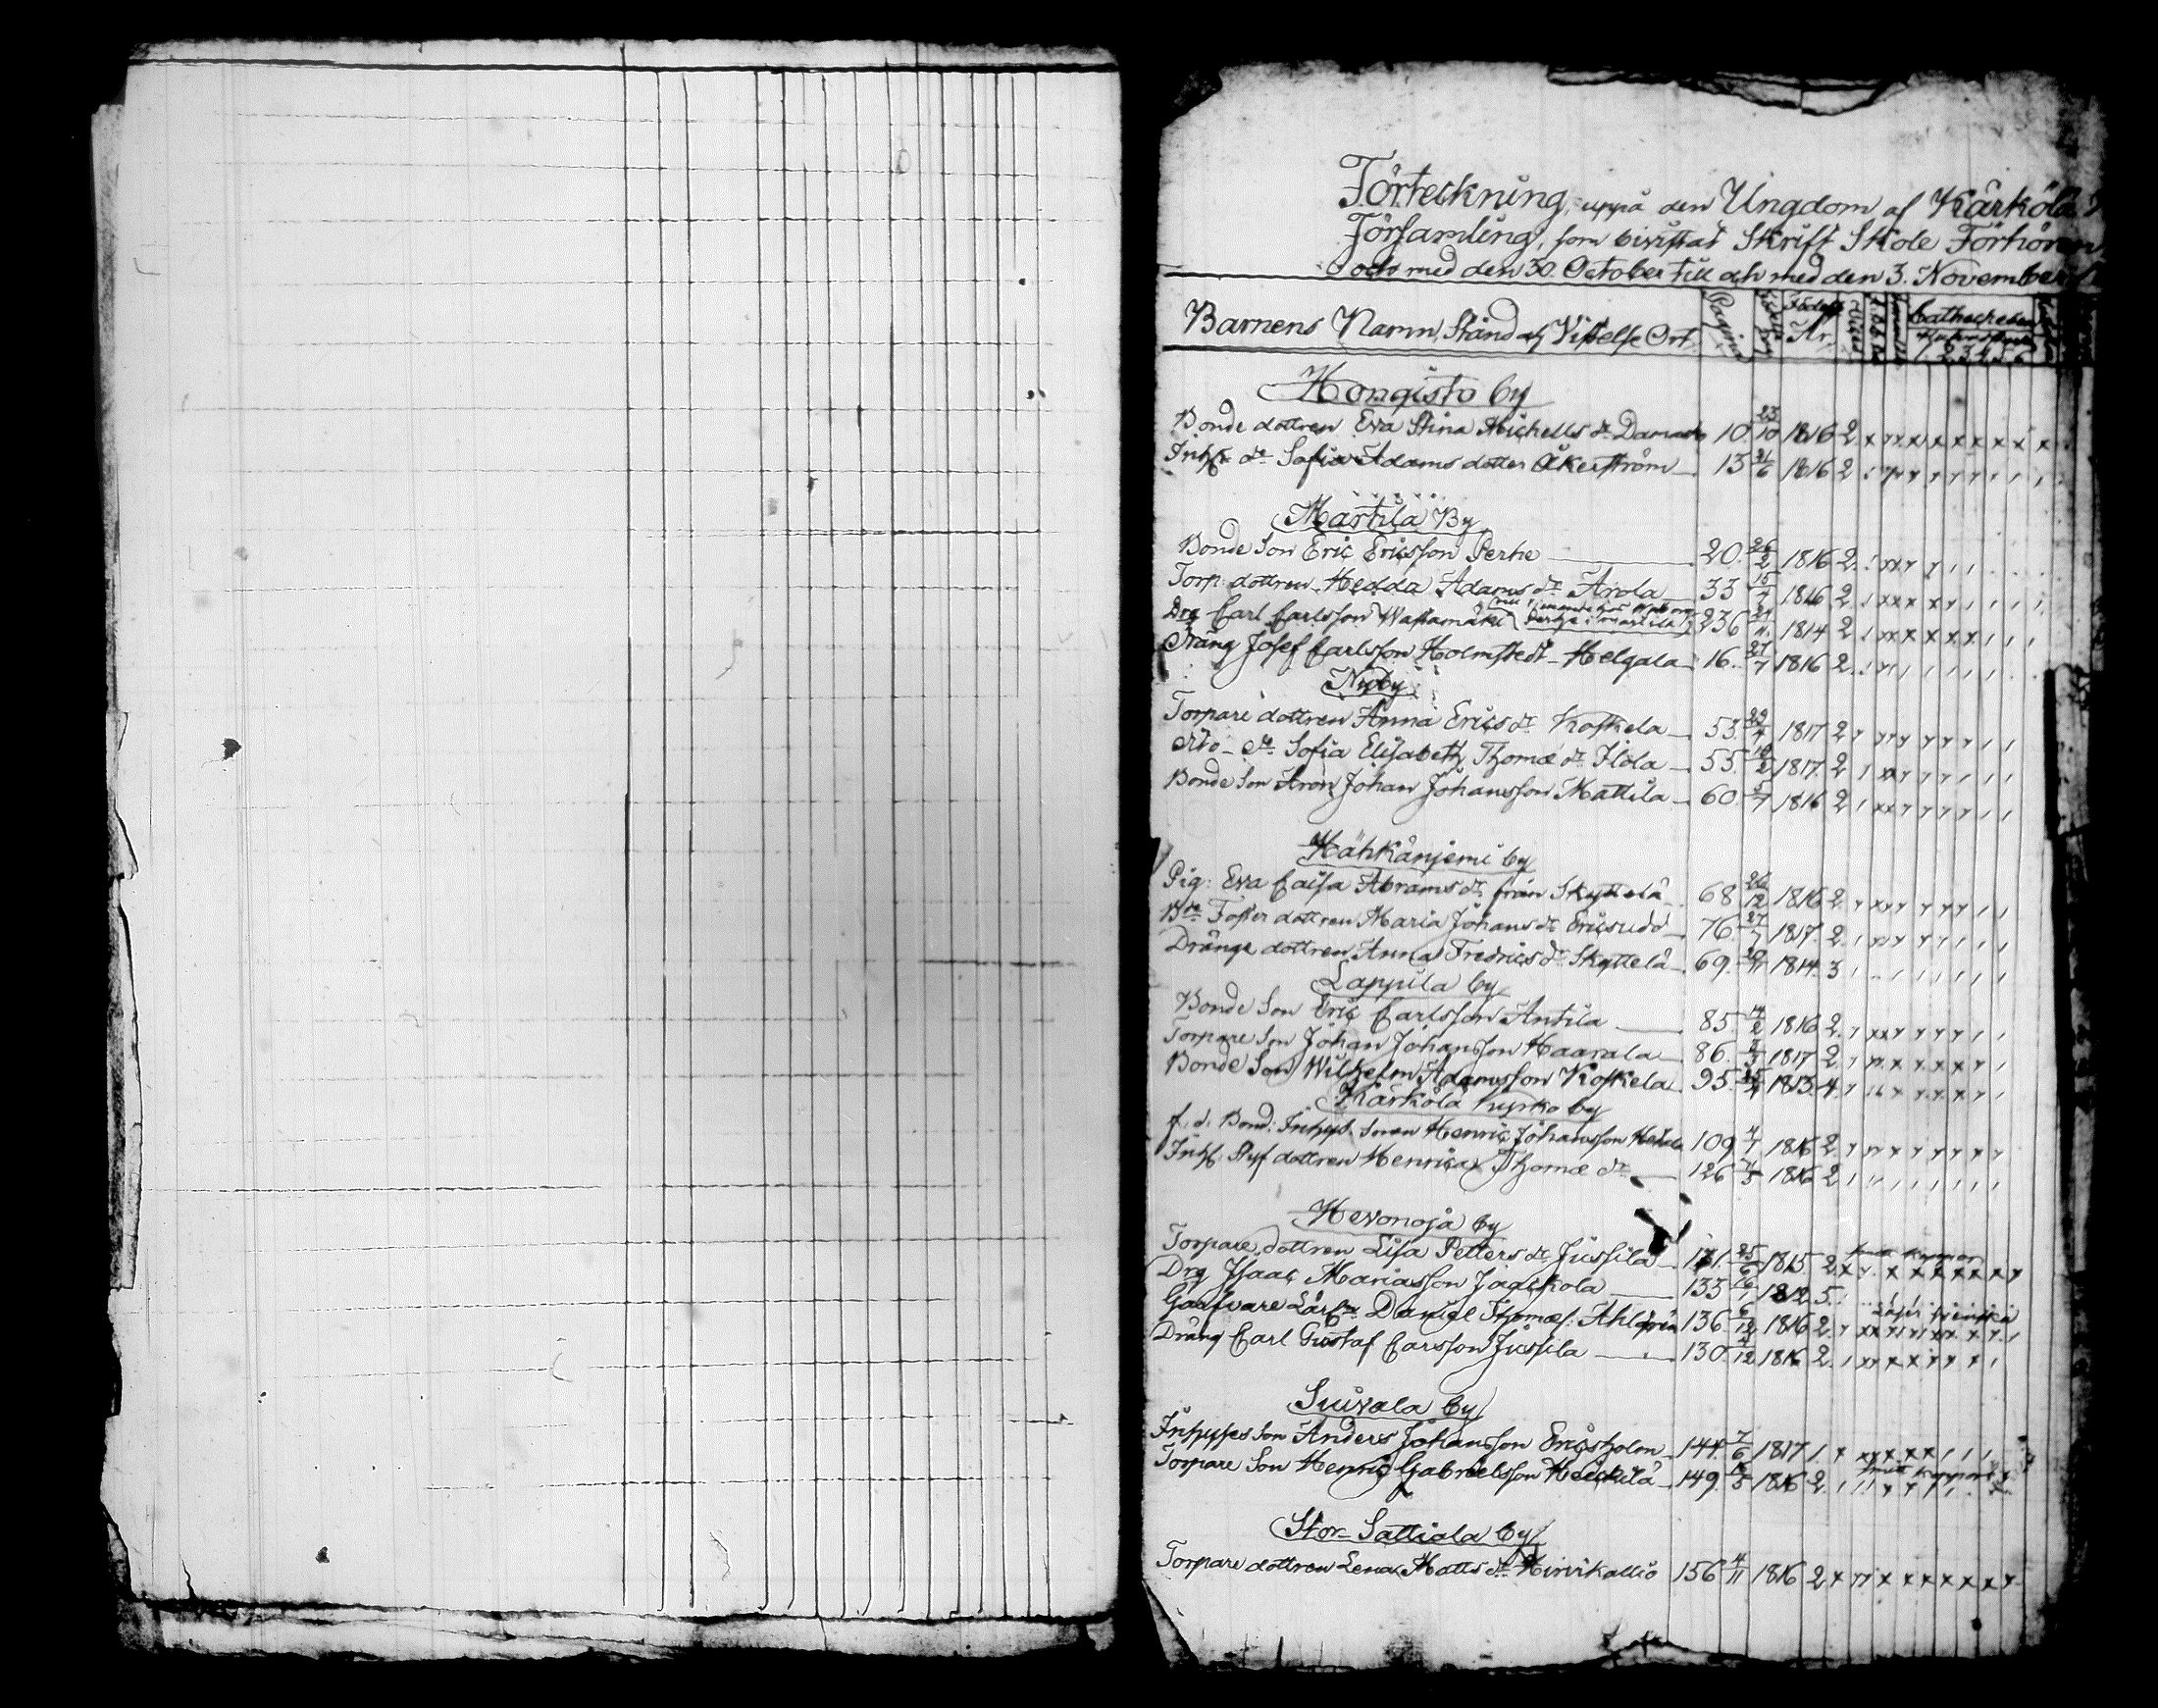 Förteckning, uppå den Ungdom af Kärkölä
Församling, som bivistat Skrift Skole Förhören
och med den 30. October till och med den 3. November
Barnens Namn, Stånd och Vistelse Ort. Pagina Födelse År. Catechesen 1 2 3 4 5 6
Hongisto by
Bonde dottren Eva Stina Michells dr 10. 23/10 1816 2
Inhs. dr Sofia Adams dotter Åkerström 13 21/6 1816 2
Martila By
Bonde Son Eric Ericsson Perhe 20. 26/2 1816 2
Torp: dottren Hedda Adams dr Arola 33 15/7 1816 2
Drg Carl Carlsson 236 1814 2
Dräng Josef Carlsson Holmstedt Helgala 16. 27/7 1816 2
Nyby
Torpare dottren Anna Erics dr Koskela 53. 29/4 1817 2
dito dr Sofia Elisabeth Thomæ dr Ilola 55. 1817. 2
Bonde Son Johan Johansson Mattila 60. 5/7 1816 2
Hähkänjemi by
Pig: Eva Caisa Abrams dr från Skyttelä 68 26/12 1816 2
Foster dottren Maria Johans dr 76. 27/7 1817. 2
Drängs dottren Anna Fredrics dr Skyttelä 69. 1814. 3
Lappila by
Bonde Son Eric Carlsson Antila 85. 14/2 1816 2
Torpare Son Johan Johansson Haarala 86. 1817 2
Bonde Son Wilhelm Adamsson Koskela 95. 1813 4
Kärkölä kyrko by
f. d. Bond: Inhys. Sonen Henric Johansson 109 4/1 1816 2
Inhs. Styf dottren Henrica Thomæ dr 126 4/5 1816 2
Hevonoja by
Torpare dottren Lisa Petters dr Jussila 131. 25/6 1815 2
Drg Isaac Mariasson 133 16/1 1812 5
Garfvare Lär Daniel Thomæs. Ahlgrén 136. 6/12 1816 2
Dräng Carl Gustaf Carlsson Jussila 130. 1816 2
Suivala by
Inhyses Son Anders Johansson Ericsholm 144. 7/6 1817 1
Torpare Son Henric Gabrielsson Heickilä 149. 1816 2
Stor Sattiala by
Torpare dottren Lena Matts dr Hirvikallio 156 4/11 1816 2